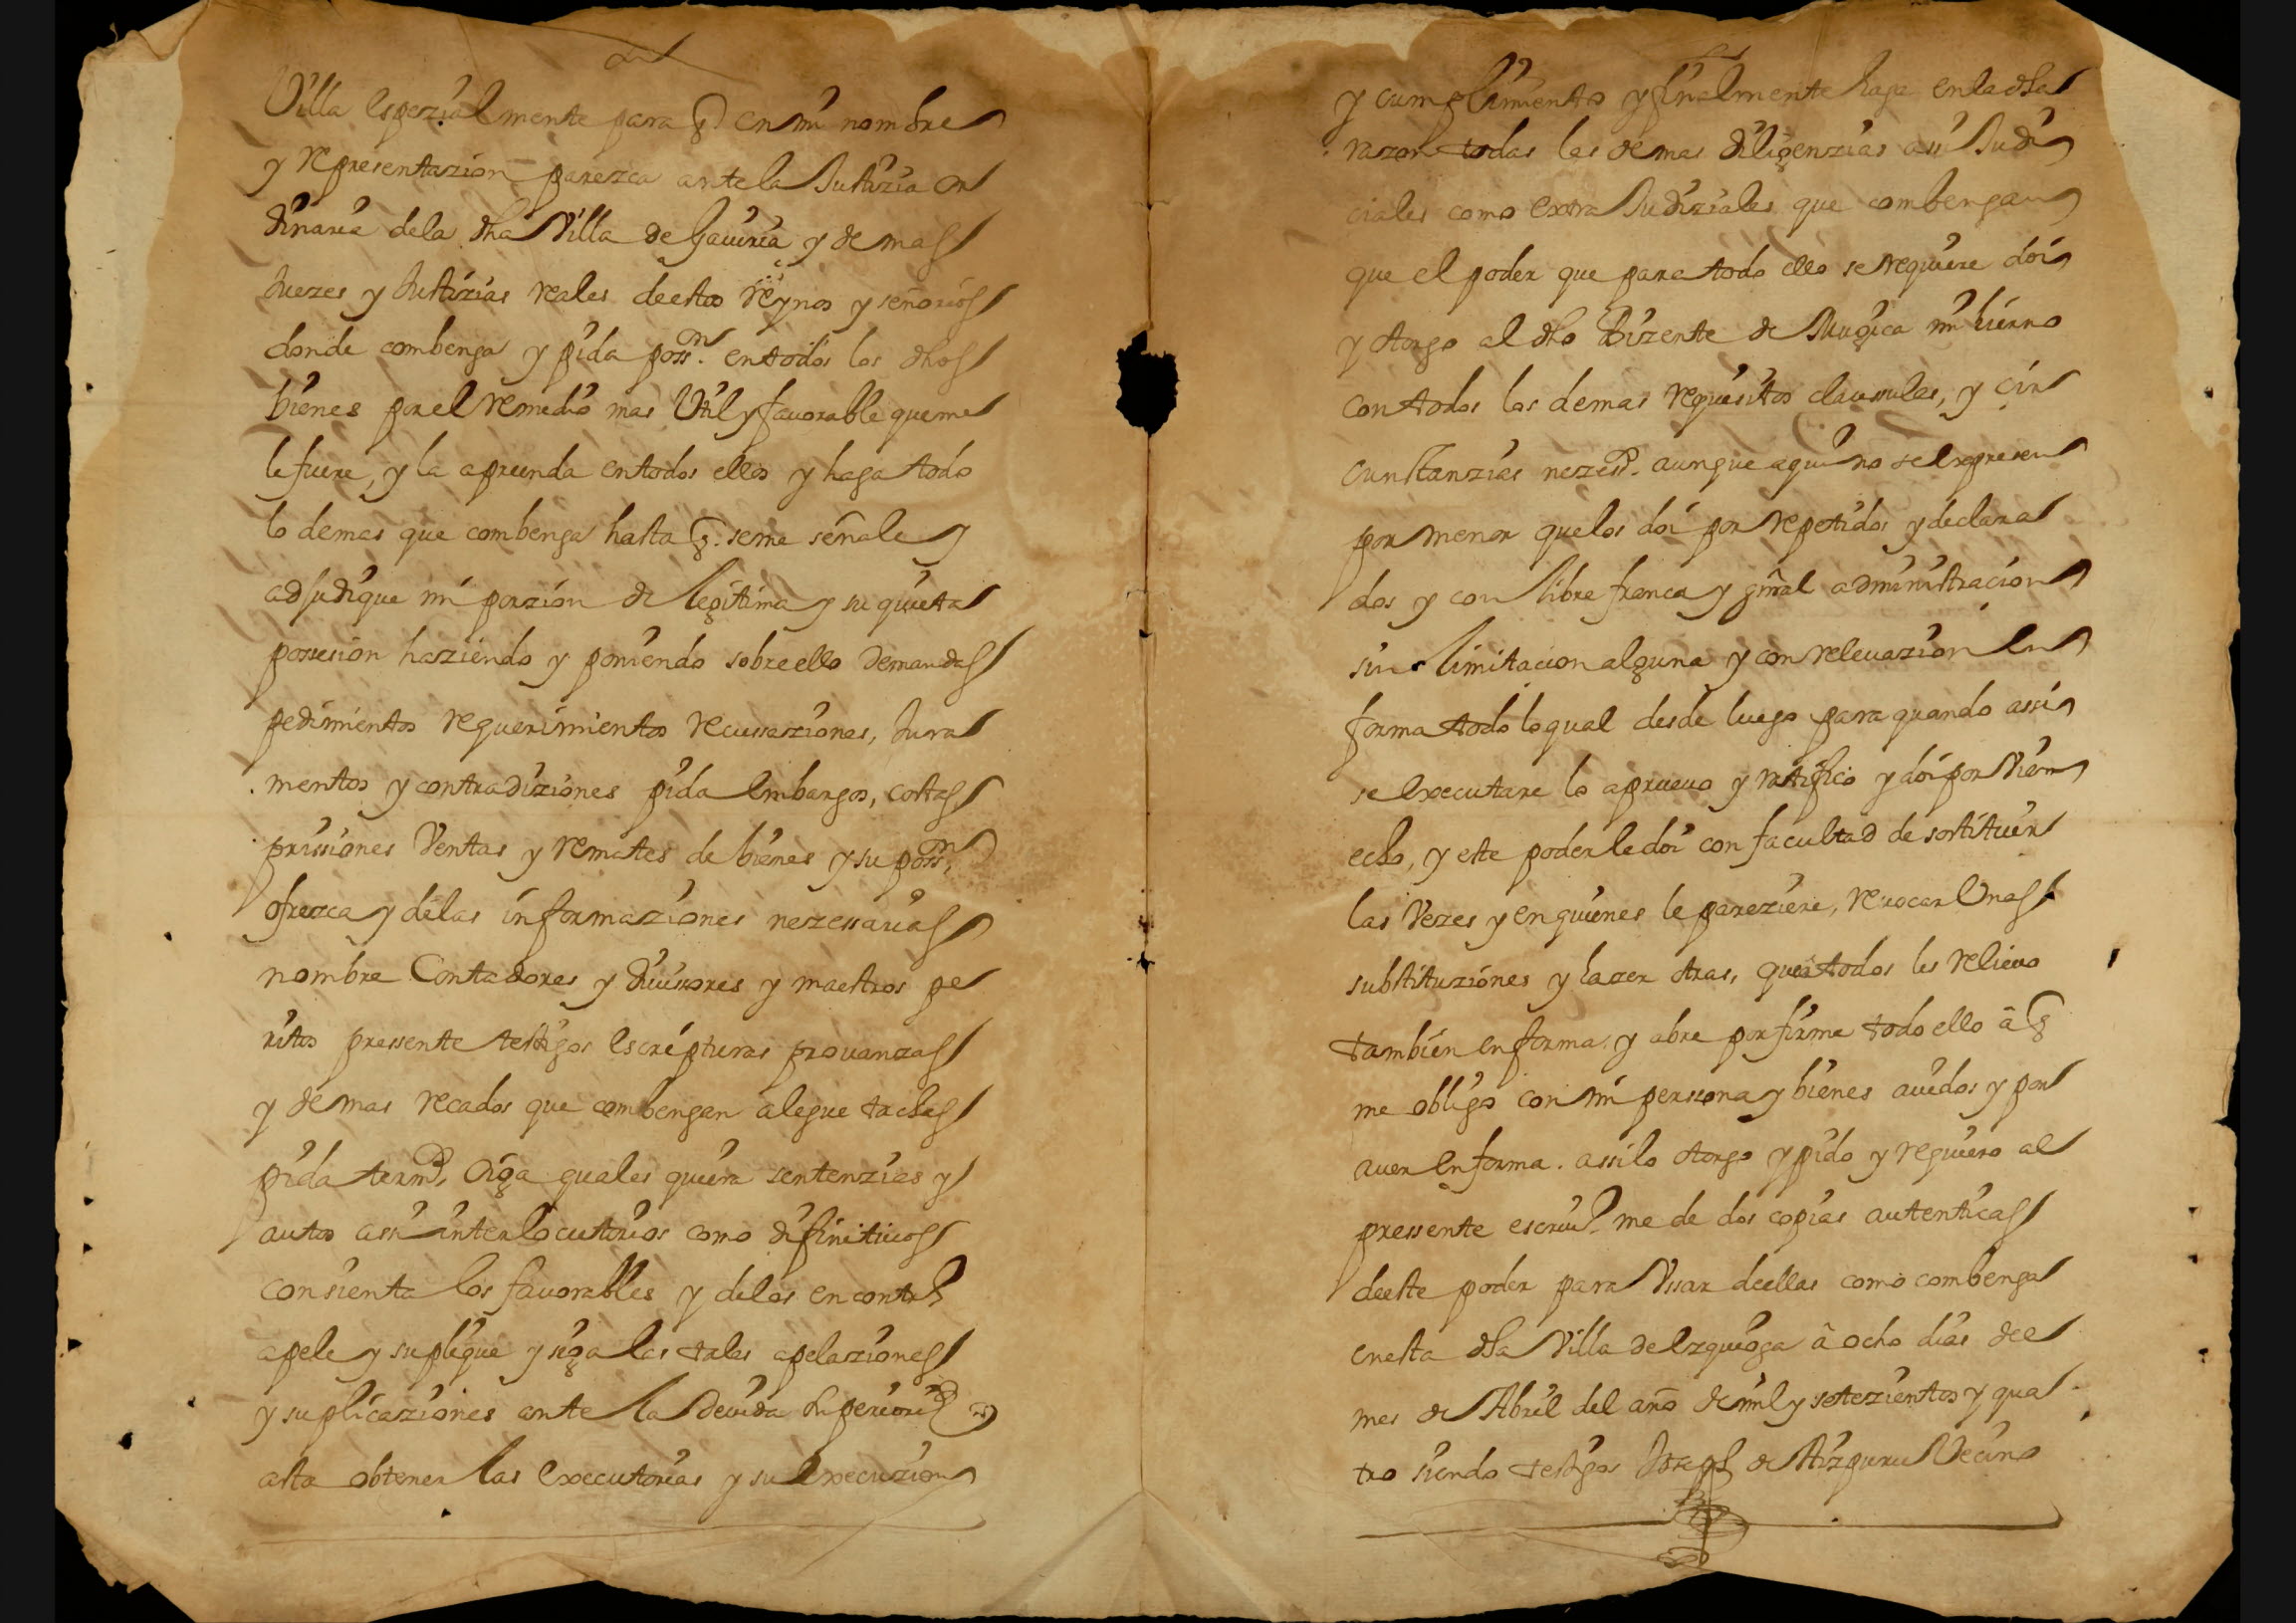 Villa espezialmente para q̃ en mi nombre
y representazion parezca ante la Justizia or
dinaria dela dha Villa de Gauiria y demas
Juezes y Justizias reales deestos reynos y señorios
donde combenga y pida possⁿ. en todos los dhos
bienes por el remedio mas Util y fauorable que me
le fuere, y la aprenda entodos ellos y haga todo
lo demas que combenga hasta q̃. seme señale y
adjudique mi porzion de legitima y su quieta
possesion haziendo y poniendo sobre ello demandas
pedimientos requerimientos recussaziones, Jura
mentos y contradiziones pida embargos, costas
prissiones Ventas y remates de bienes y su possⁿ,
ofrezca y delas informaziones nezessarias
nombre Contadores y diuissores y maestros pe
ritos pressente testigos escripturas prouanzas
y demas recados que combengan alegue tachas
pida termº, oiga quales quiera sentenzias y
autos assi interlocutorios como difinitiuos
consienta los fauorables y delos en contrº
apele y suplique y siga las tales apelaziones
y suplicaziones ante la deuida superioridᵈ
asta obtener las executorias y su execuzion
y cumplimiento y finalmente haga enladha
razon todas las demas diligenzias assi Judi
ciales como extra Judiziales que combengan
que el poder que para todo ello se requiere doi
y otorgo al dho Bizente de Mugica mi hierno
con todos los demas requisitos claussulas, y cir
cunstanzias nezessº. aunque aqui no se expresen
por menor quelos doi por repetidos y declara
dos y con libre franca y gñral administracion
sin limitacion alguna y con releuazion en
forma todo loqual desde luego para quando assi
se executare lo aprueuo y ratifico y doi por Vien
echo, y este poder le doi con facultad de sostituir
las Vezes y en quienes le pareziere, reuocar Unas
substituziones y hazer otras, que a todos les relieuo
tambien en forma, y abre por firme todo ello â q̃
me obligo con mi perssona y bienes auidos y por
auer en forma. assilo otorgo y pido y requiero al
pressente escriuº. me de dos copias autenticas
deeste poder para Vssar deellas como combenga
enesta dha Villa de Ezquioga â ocho dias del
mes de Abril del año de mil y setezientos y qua
tro siendo testigos Joseph de Aizpuru Vecino